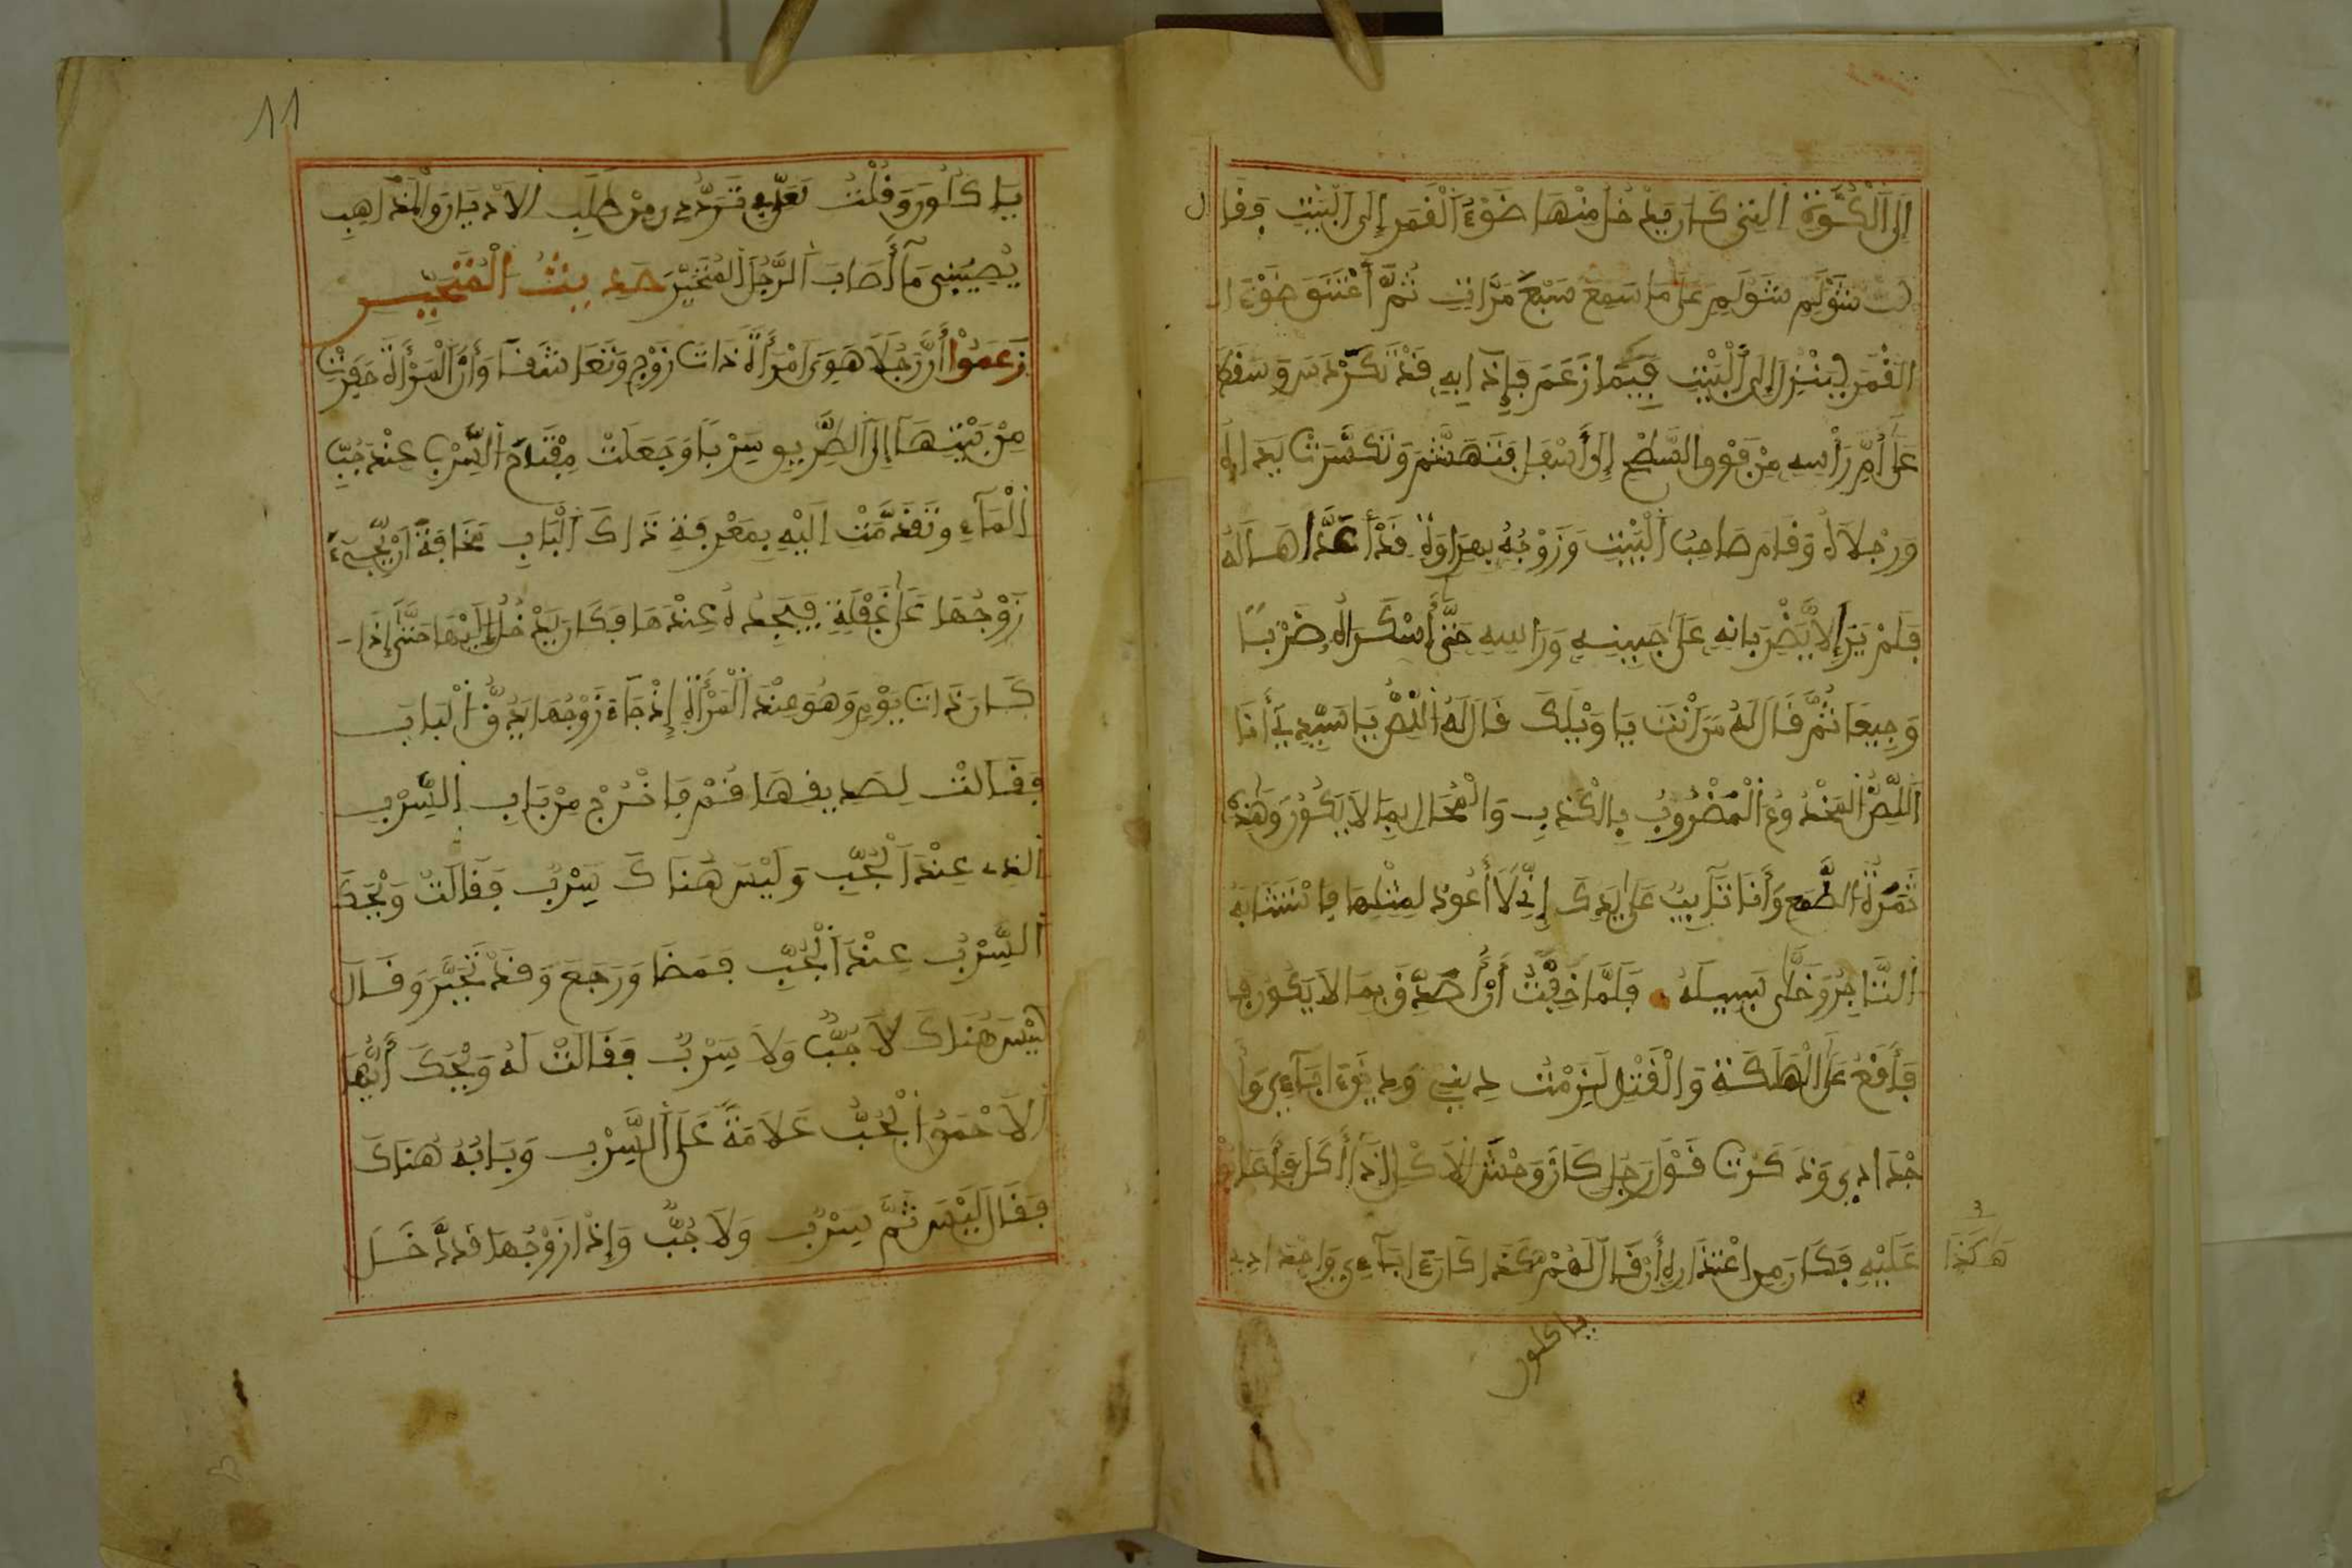 إِلَى الْكُوَّةِ التِي كَانَ يَدْخُلُ مِنْهَا ضَوْءُ الْقَمَرِ إِلَى الْبَيْتِ فَقَال
شَوْلَم شَوْلَم عَلَى مَا سَمِعَ سَبْعَ مَرَّاتٍ ثُمَّ اعْتَنَقَ ضَوْءَ ا
القَمَرِ لِيَنْزِلَ إِلَى الْبَيْتِ فِيمَا زَعَمَ فَإِذَا بِهِ قَدْ تَكَرْدَسَ وَسَقَطَ
عَلَى أُمِّ رَأْسِهِ مِنْ فَوْقِ السَّطْحِ إِلَى أَسْفَل فَتَهَشَّمَ وَتَكَسَّرَتْ يَدَاهُ
وَرِجْلَاهُ وَقَامَ صَاحِبُ الْبَيْتِ وَزَوْجُهُ بِهَرَاوَةٍ قَدْ أَعَدَّاهَا لَهُ
فَلَمْ يَزَالَا يَضْرِبَانِهِ عَلَى جَبِينِهِ وَرَاسِهِ حَتَّى أَسْكَرَاهُ ضَرْبًا
وَجِيعًا ثُمَّ قَالَ لَهُ مَنَ انْتَ يَا وَيْلَكَ قَالَ لَهُ اللِّصُّ يَا سَيِّدِي أَنَا
اللِّصُّ الْمَخْدُوعُ الْمَضْرُوبُ بِالْكَذِبِ وَالْمُحَالِ بِمَا لَا يَكُونُ وَهَذِهِ
ثَمَرَةُ الطَّمَعِ وَأَنَا تَآيِبٌ عَلَى يَدِكَ إِنِّي لَا أَعُودُ لِمِثْلِهَا فَاسْتَتَابَهُ
التَّاجِرُ وَخَلَّى سَبِيلَهُ فَلَمَّا خِفْتُ أَنْ أُصَدِّقَ بِمَا لَا يَكُونُ
فَأَقَعُ عَلَى الْهَلَكَةِ وَالْقَتْلِ لَزِمْتُ دِينِي وَدِينَ ءَابَآءِي وَأَ
جْدَادِي وَذَكَرْتُ قَوْلَ رَجُلٍ كَانَ وَحْشَ الأَكْلِ إِذَا أَكَلَ
عَلَيْهِ فَكَانَ مِنِ اعْتِذَارِهِ أَنْ قَالَ لَهُمْ هَكَذَا كَانَ ءَابَآءِي وَاجْدَادِي
هَاكَذَا
ياكلون
11
يَاكُلُونَ وَقُلْتُ لَعَلِّي تَرَدُّدِي مِنْ طَلَبِ الأَدْيَانِ وَالْمَذَاهِبِ
يُصِيبُنِي مَا أَصَابَ الرَّجُلَ الْمُتَحَيِّرَ حَدِيثُ الْمُتَحَيِّر
زَعَمُوا أَنَّ رَجُلًا هَوِيَ امْرَأَةً ذَاتَ زَوْجٍ وَتَعَاشَقَا وَأَنَّ الْمَرْأَةَ حَفَرَتْ
مِنْ بَيْتِهَا إِلَى الطَّرِيقِ سَرْبًا وَجَعَلَتْ مِفْتَاحَ السَّرْبِ عِنْدَ جُبِّ
الْمَآءِ وَتَقَدَّمَتْ إِلَيْهِ بِمَعْرِفَةِ ذَاكَ الْبَابِ مَخَافَةً أَنْ يَجِيءَ
زَوْجُهَا عَلَى غَفْلَةٍ فَيَجِدُهُ عِنْدَهَا فَكَانَ يَدْخُلُ إِلَيْهَا حَتَّى إِذَا
كَانَ ذَاتَ يَوْمٍ وَهُوَ عِنْدَ الْمَرْأَةِ إِذْ جَآءَ زَوْجُهَا يَدُقُّ الْبَابَ
فَقَالَتْ لِصَدِيقِهَا قُمْ فَاخْرُجْ مِنْ بَابِ السَّرْبِ
الذِي عِنْدَ الْجُبِّ وَلَيْسَ هُنَاكَ سَرْبٌ فَقَالَتْ وَيْحَكَ
السَّرْبُ عِنْدَ الْجُبِّ فَمَضَا وَرَجَعَ وَقَدْ تَحَيَّرَ وَقَالَ
لَيْسَ هُنَاكَ لَا جُبٌّ وَلَا سَرْبٌ فَقَالَتْ لَهُ وَيْحَكَ أَيُّهَا
الأَحْمَقُ الْجُبُّ عَلَامَةً عَلَى السَّرْبِ وَبَابُهُ هُنَاكَ
فَقَالَ لَيْسَ ثَمَّ سَرْبٌ وَلَا جُبٌّ وَإِذَا زَوْجُهَا قَدْ دَخَلَ